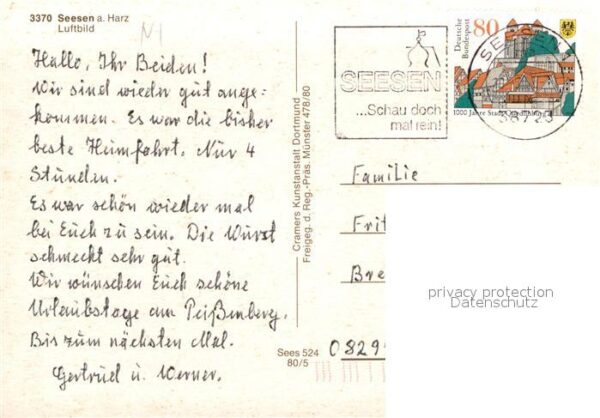 3370 Seesen a. Harz
Luftbild
Hallo, Ihr Beiden!
Wir sind wieder gut ange-
kommen. Es war die bisher
beste Heimfahrt. Nur 4
Stunden.
Es war schön wieder mal
bei Euch zu sein. Die Wurst
schmeckt sehr gut.
Wir wünschen Euch schöne
Urlaubstage am Peißenberg.
Bis zum nächsten Mal.
Gertrud u. Werner.
Cramers Kunstanstalt Dortmund
Freigeg. d. Reg.-Präs. Münster 478/80
Sees 524
80/5
SEESEN
...Schau doch
mal rein!
Deutsche
Bundespost
80
1000 Jahre Stadt
SEESEN
Familie
Frit
Bre
0829
privacy protection
Datenschutz